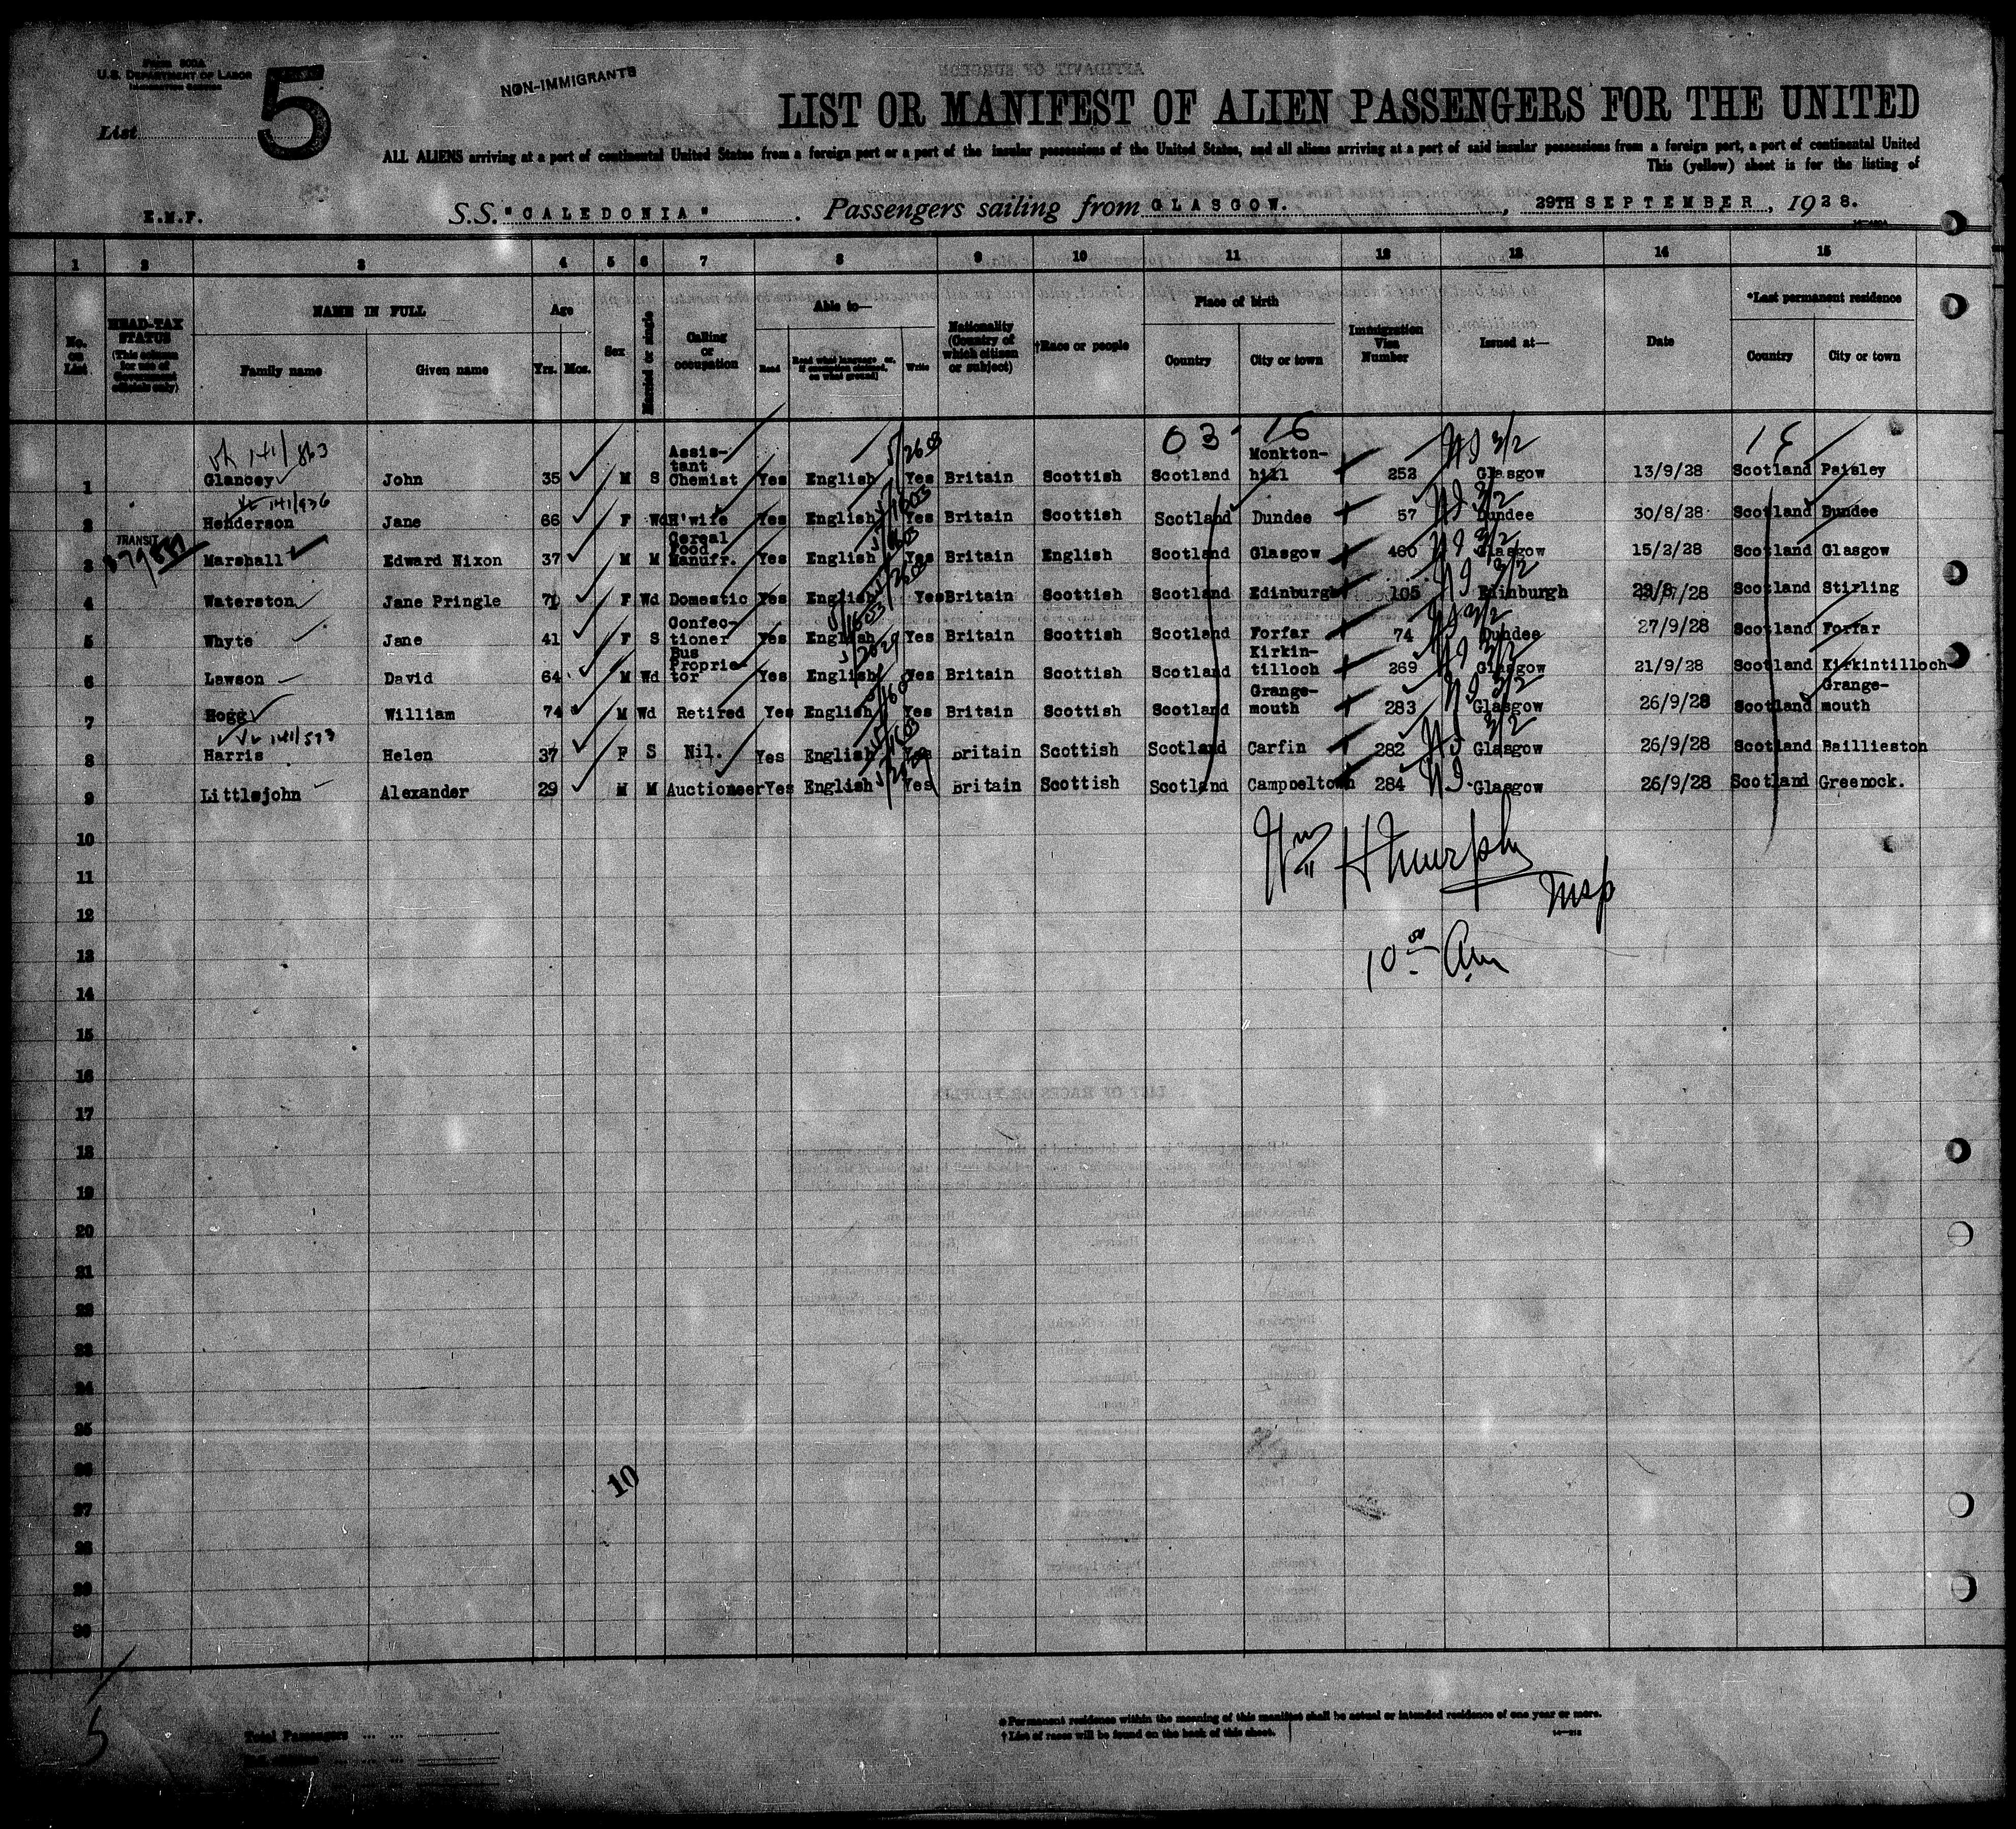 Form 500A
U.S. DEPARTMENT OF LABOR
IMMIGRATION SERVICE
List 5
NON-IMMIGRANTS
LIST OR MANIFEST OF ALIEN PASSENGERS FOR THE UNITED
ALL ALIENS arriving at a port of continental United States from a foreign port or a port of the insular possessions of the United States, and all aliens arriving at a port of said insular possessions from a foreign port, a port of continental United
This (yellow) sheet is for the listing of
E.M.F. S.S. "CALEDONIA" . Passengers sailing from GLASGOW. , 29TH SEPTEMBER , 1928.
1 2 3 4 5 6 7 8 9 10 11 12 13 14 15
No. on List
HEAD-TAX STATUS (This column for use of Government officials only)
NAME IN FULL
Family name Given name
Age
Yrs. Mos.
Sex
Married or single
Calling or occupation
Able to—
Read Read what language or, if exemption claimed, on what ground Write
Nationality (Country of which citizen or subject)
†Race or people
Place of birth
Country City or town
Immigration Visa Number
Issued at—
Date
*Last permanent residence
Country City or town
03 - 16
141/863
1 Glancey John 35 M S Assis-tant Chemist Yes English Yes Britain Scottish Scotland Monkton-hill 252 Glasgow 13/9/28 Scotland Paisley
141/936
2 Henderson Jane 66 F Wd H'wife Yes English Yes Britain Scottish Scotland Dundee 57 Dundee 30/8/28 Scotland Dundee
TRANSIT
3 Marshall Edward Nixon 37 M M Cereal Food Manufr. Yes English Yes Britain English Scotland Glasgow 460 Glasgow 15/2/28 Scotland Glasgow
4 Waterston Jane Pringle 71 F Wd Domestic Yes English Yes Britain Scottish Scotland Edinburgh 105 Edinburgh /28 Scotland Stirling
5 Whyte Jane 41 F S Confec-tioner Yes English Yes Britain Scottish Scotland Forfar 74 Dundee 27/9/28 Scotland Forfar
6 Lawson David 64 M Wd Bus Proprie-tor Yes English Yes Britain Scottish Scotland Kirkin-tilloch 269 Glasgow 21/9/28 Scotland Kirkintilloch
7 Hogg William 74 M Wd Retired Yes English Yes Britain Scottish Scotland Grange-mouth 283 Glasgow 26/9/28 Scotland Grange-mouth
141/573
8 Harris Helen 37 F S Nil. Yes English Yes Britain Scottish Scotland Carfin 282 Glasgow 26/9/28 Scotland Baillieston
9 Littlejohn Alexander 29 M M Auctioneer Yes English Yes Britain Scottish Scotland Campbeltown 284 Glasgow 26/9/28 Scotland Greenock.
10
Wm H Murphy
11
Insp
12
13
10 00 Am
14
15
16
17
18
19
20
21
22
23
24
25
26
10
27
28
29
30
5
Total Passengers
* Permanent residence within the meaning of this manifest shall be actual or intended residence of one year or more.
† List of races will be found on the back of this sheet.